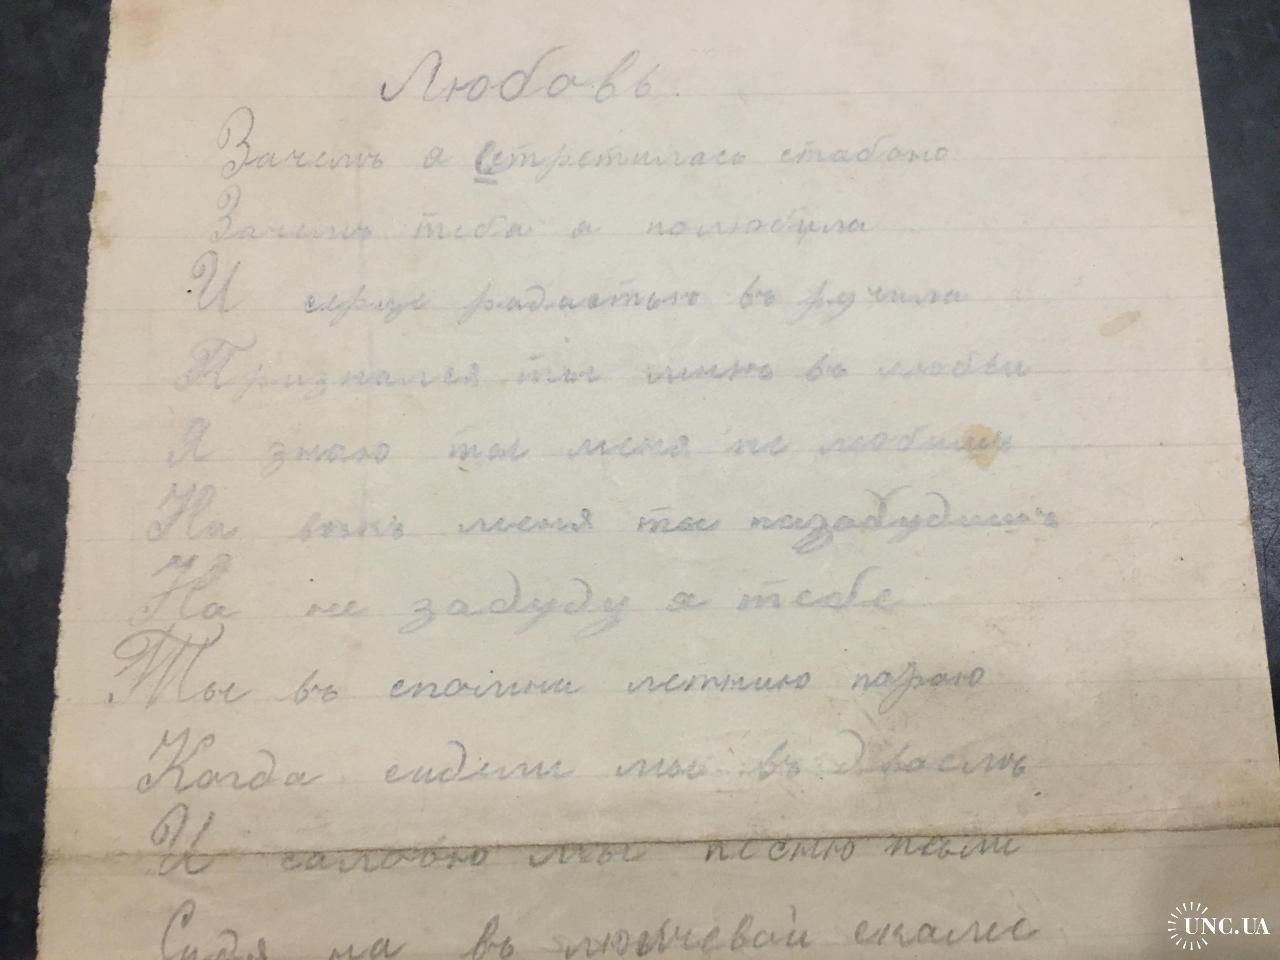 Любовь.
Зачемъ я встретилась стабою
Зачемъ тебя я полюбила
И серце радастью въ ручила
Признался ты мнѣ въ любви
Я знаю ты меня не любишъ
На вѣкъ меня ты пазабудишъ
На не забуду я тебе
Ты въ спомни летнию параю
Когда сидели мы въ двоемъ
И саловю мы песню пѣли
Сидя на въ скаме
UNC.UA